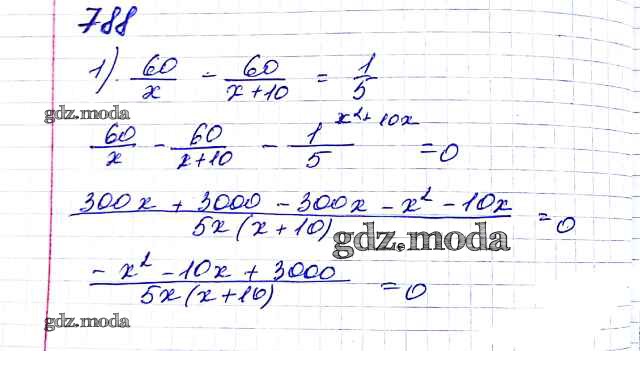 788
1). 60/x - 60/(x+10) = 1/5
gdz.moda
60/x - 60/(x+10) - 1/5 x²+10x = 0
(300x + 3000 - 300x - x² - 10x)/(5x(x+10)) = 0
gdz.moda
(-x² - 10x + 3000)/(5x(x+10)) = 0
gdz.moda